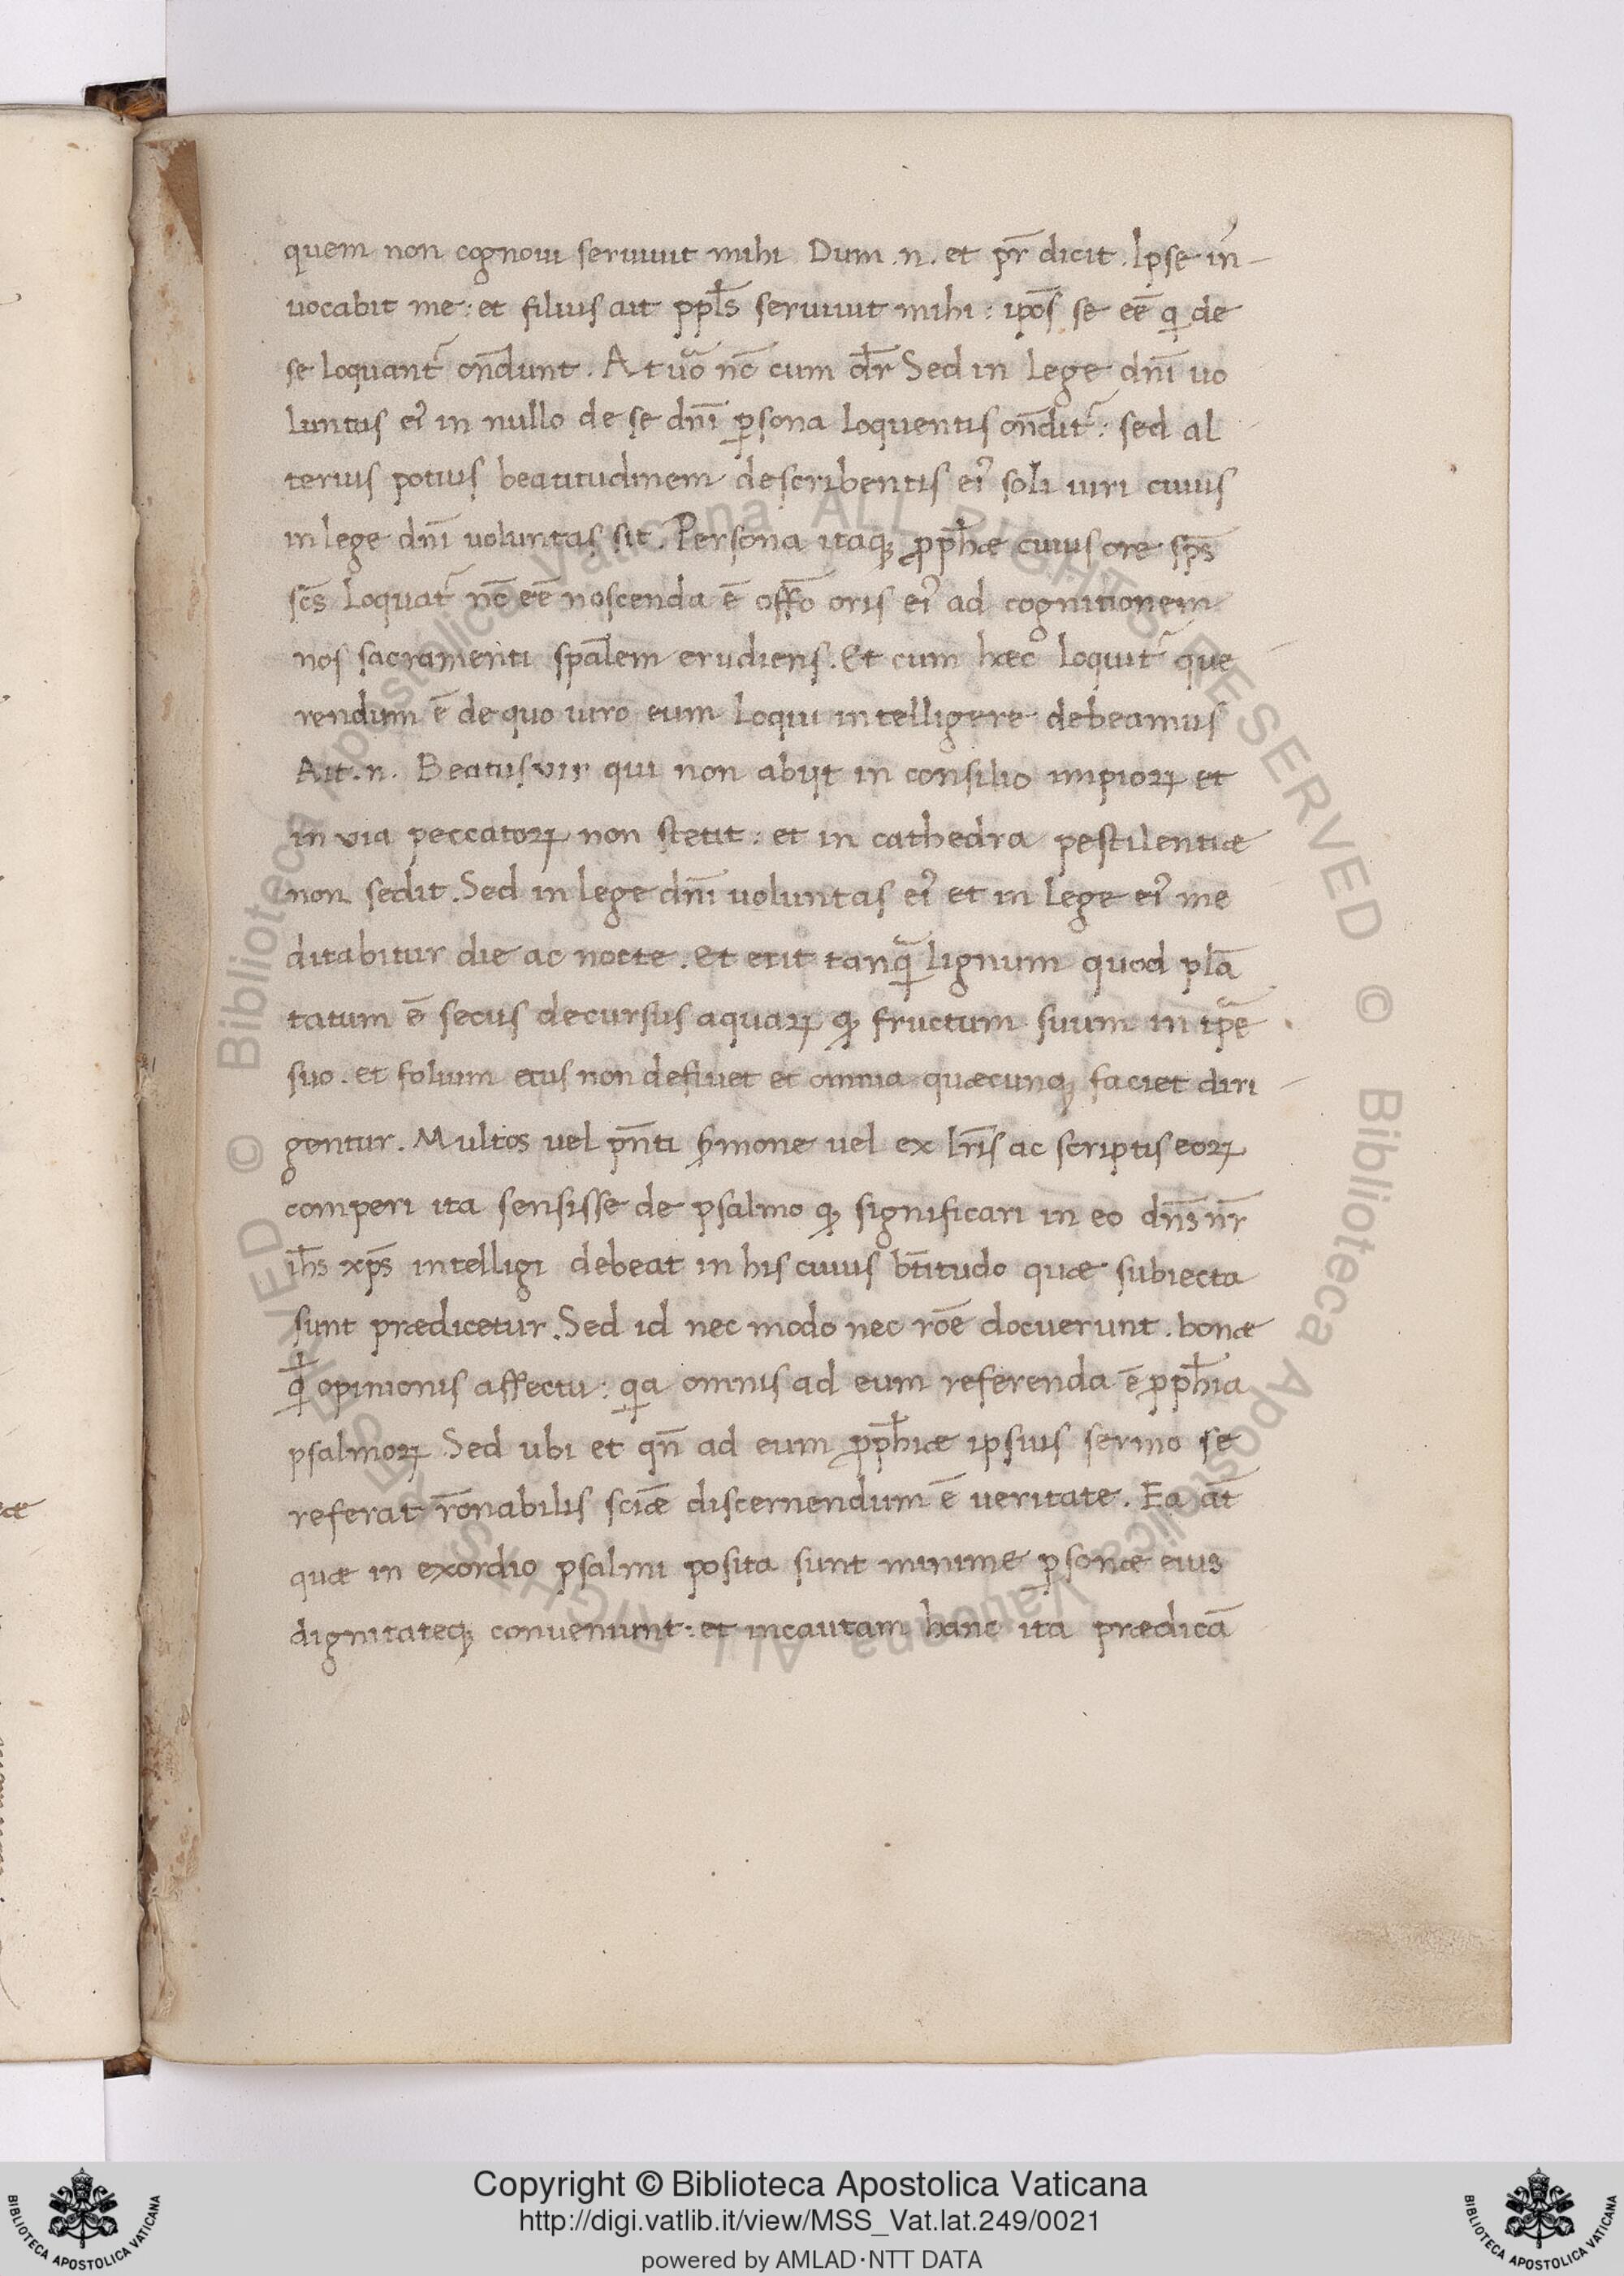 quem non cognoui seruiuit mihi Dum .n. et pr̄ dicit . Ipse in-
uocabit me : et filius ait ppl̄s seruiuit mihi : ipōs se eē q de
se loquant᷑ on̄dunt . At uoᷓ nc̄ cum dr̄ Sed in lege dn̄i uo
luntas eiꝰ in nullo de se dn̄i ꝑsona loquentis on̄dit᷑ : sed al
terius potius beatitudinem describentis eiꝰ soli uiri cuius
in lege dn̄i uoluntas sit . Persona itaqꝫ ꝓph̄æ cuius ore sps̄
sc̄s loquat᷑ nc̄ eē noscenda ē off̄o oris eiꝰ ad cognitionem
nos sacramenti spālem erudiens . Et cum hæc loquit᷑ que
rendum ē de quo uiro eum loqui intelligere debeamus
Ait .n. Beatus vir qui non abijt in consilio impioꝝ et
in via peccatoꝝ non stetit : et in cathedra pestilentiæ
non sedit . Sed in lege dn̄i uoluntas eiꝰ et in lege eiꝰ me
ditabitur die ac nocte . Et erit tanꝗᷓ lignum quod plā
tatum ē secus decursus aquaꝝ qꝫ fructum suum in tpē
suo . et folium eius non defluet et omnia quæcunqꝫ faciet diri
gentur . Multos vel pn̄ti ẜmone vel ex lr̄is ac scriptis eoꝝ
comperi ita sensisse de psalmo qꝫ significari in eo dn̄s nr̄
ih̄s xp̄s intelligi debeat in his cuius bt̄itudo quæ subiecta
sunt prædicetur . Sed id nec modo nec rōe docuerunt . bonæ
ꝗ̄ opinionis affectu : ꝗa omnis ad eum referenda ē ꝓph̄ia
psalmoꝝ Sed ubi et qn̄ ad eum ꝓph̄iæ ipsius sermo se
referat rōnabilis sciǣ discernendum ē veritate . Ea at̄
quæ in exordio psalmi posita sunt minime ꝑsonæ eius
dignitateqꝫ conveniunt : et incautam hanc ita prædicā
Copyright © Biblioteca Apostolica Vaticana
http://digi.vatlib.it/view/MSS_Vat.lat.249/0021
powered by AMLAD·NTT DATA